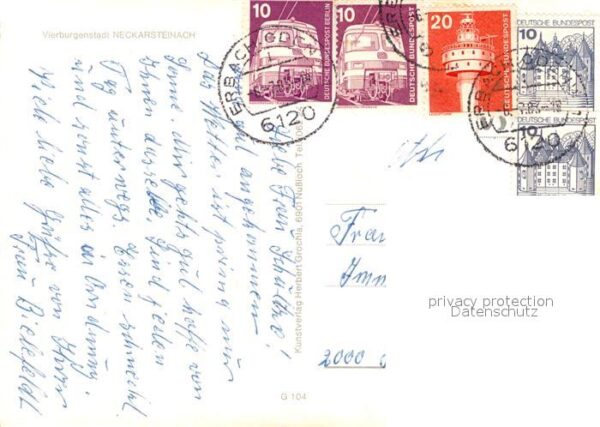 Vierburgenstadt NECKARSTEINACH
Liebe Frau Schultke!
gut angekommen
Das Wetter ist prima nur
Sonne dir gehts gut hoffe von
Ihnen dasselbe. Sind jeden
Tag unterwegs. Essen schmeckt
und sonst alles in Ordnung.
Viele liebe Grüße von Ihrer
Frau Bielefeldt
G 104
Kunstverlag Herbert Grochla, 6901 Nußloch Tel. 06
10
DEUTSCHE BUNDESPOST BERLIN
10
DEUTSCHE BUNDESPOST BERLIN
20
DEUTSCHE BUNDESPOST
10
DEUTSCHE BUNDESPOST
10
DEUTSCHE BUNDESPOST
ERBACH, ODENW
6120
ERBACH
6120
Fra
2000
privacy protection
Datenschutz